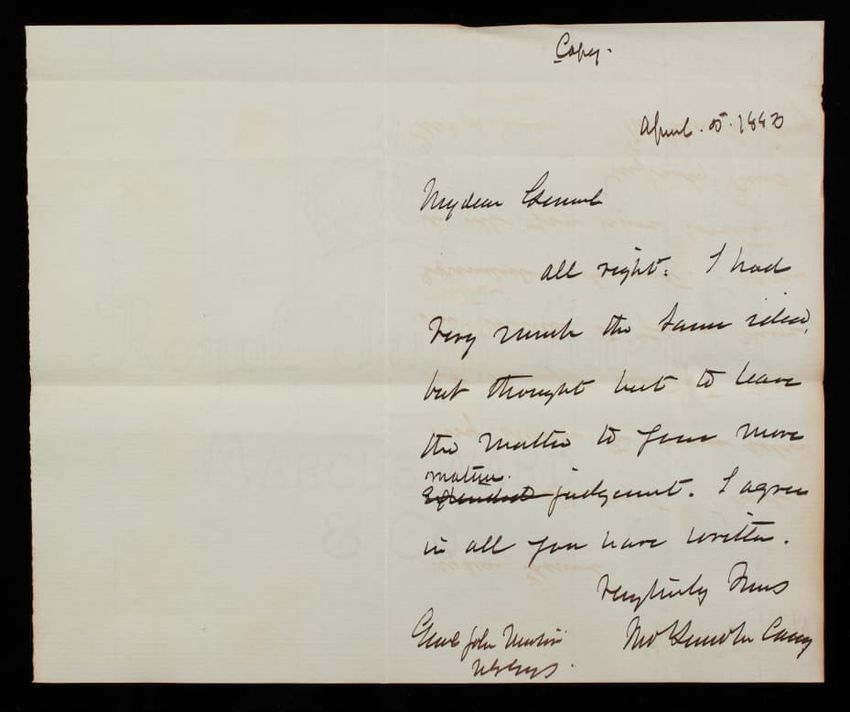 Copy.
April. 5. 1883
My dear General
all right. I had
very much the same idea,
but thought best to leave
the matter to your more
mature.
judgement. I agree
in all you have written.
Very truly Yours
Thos Lincoln Casey
Genl John Newton